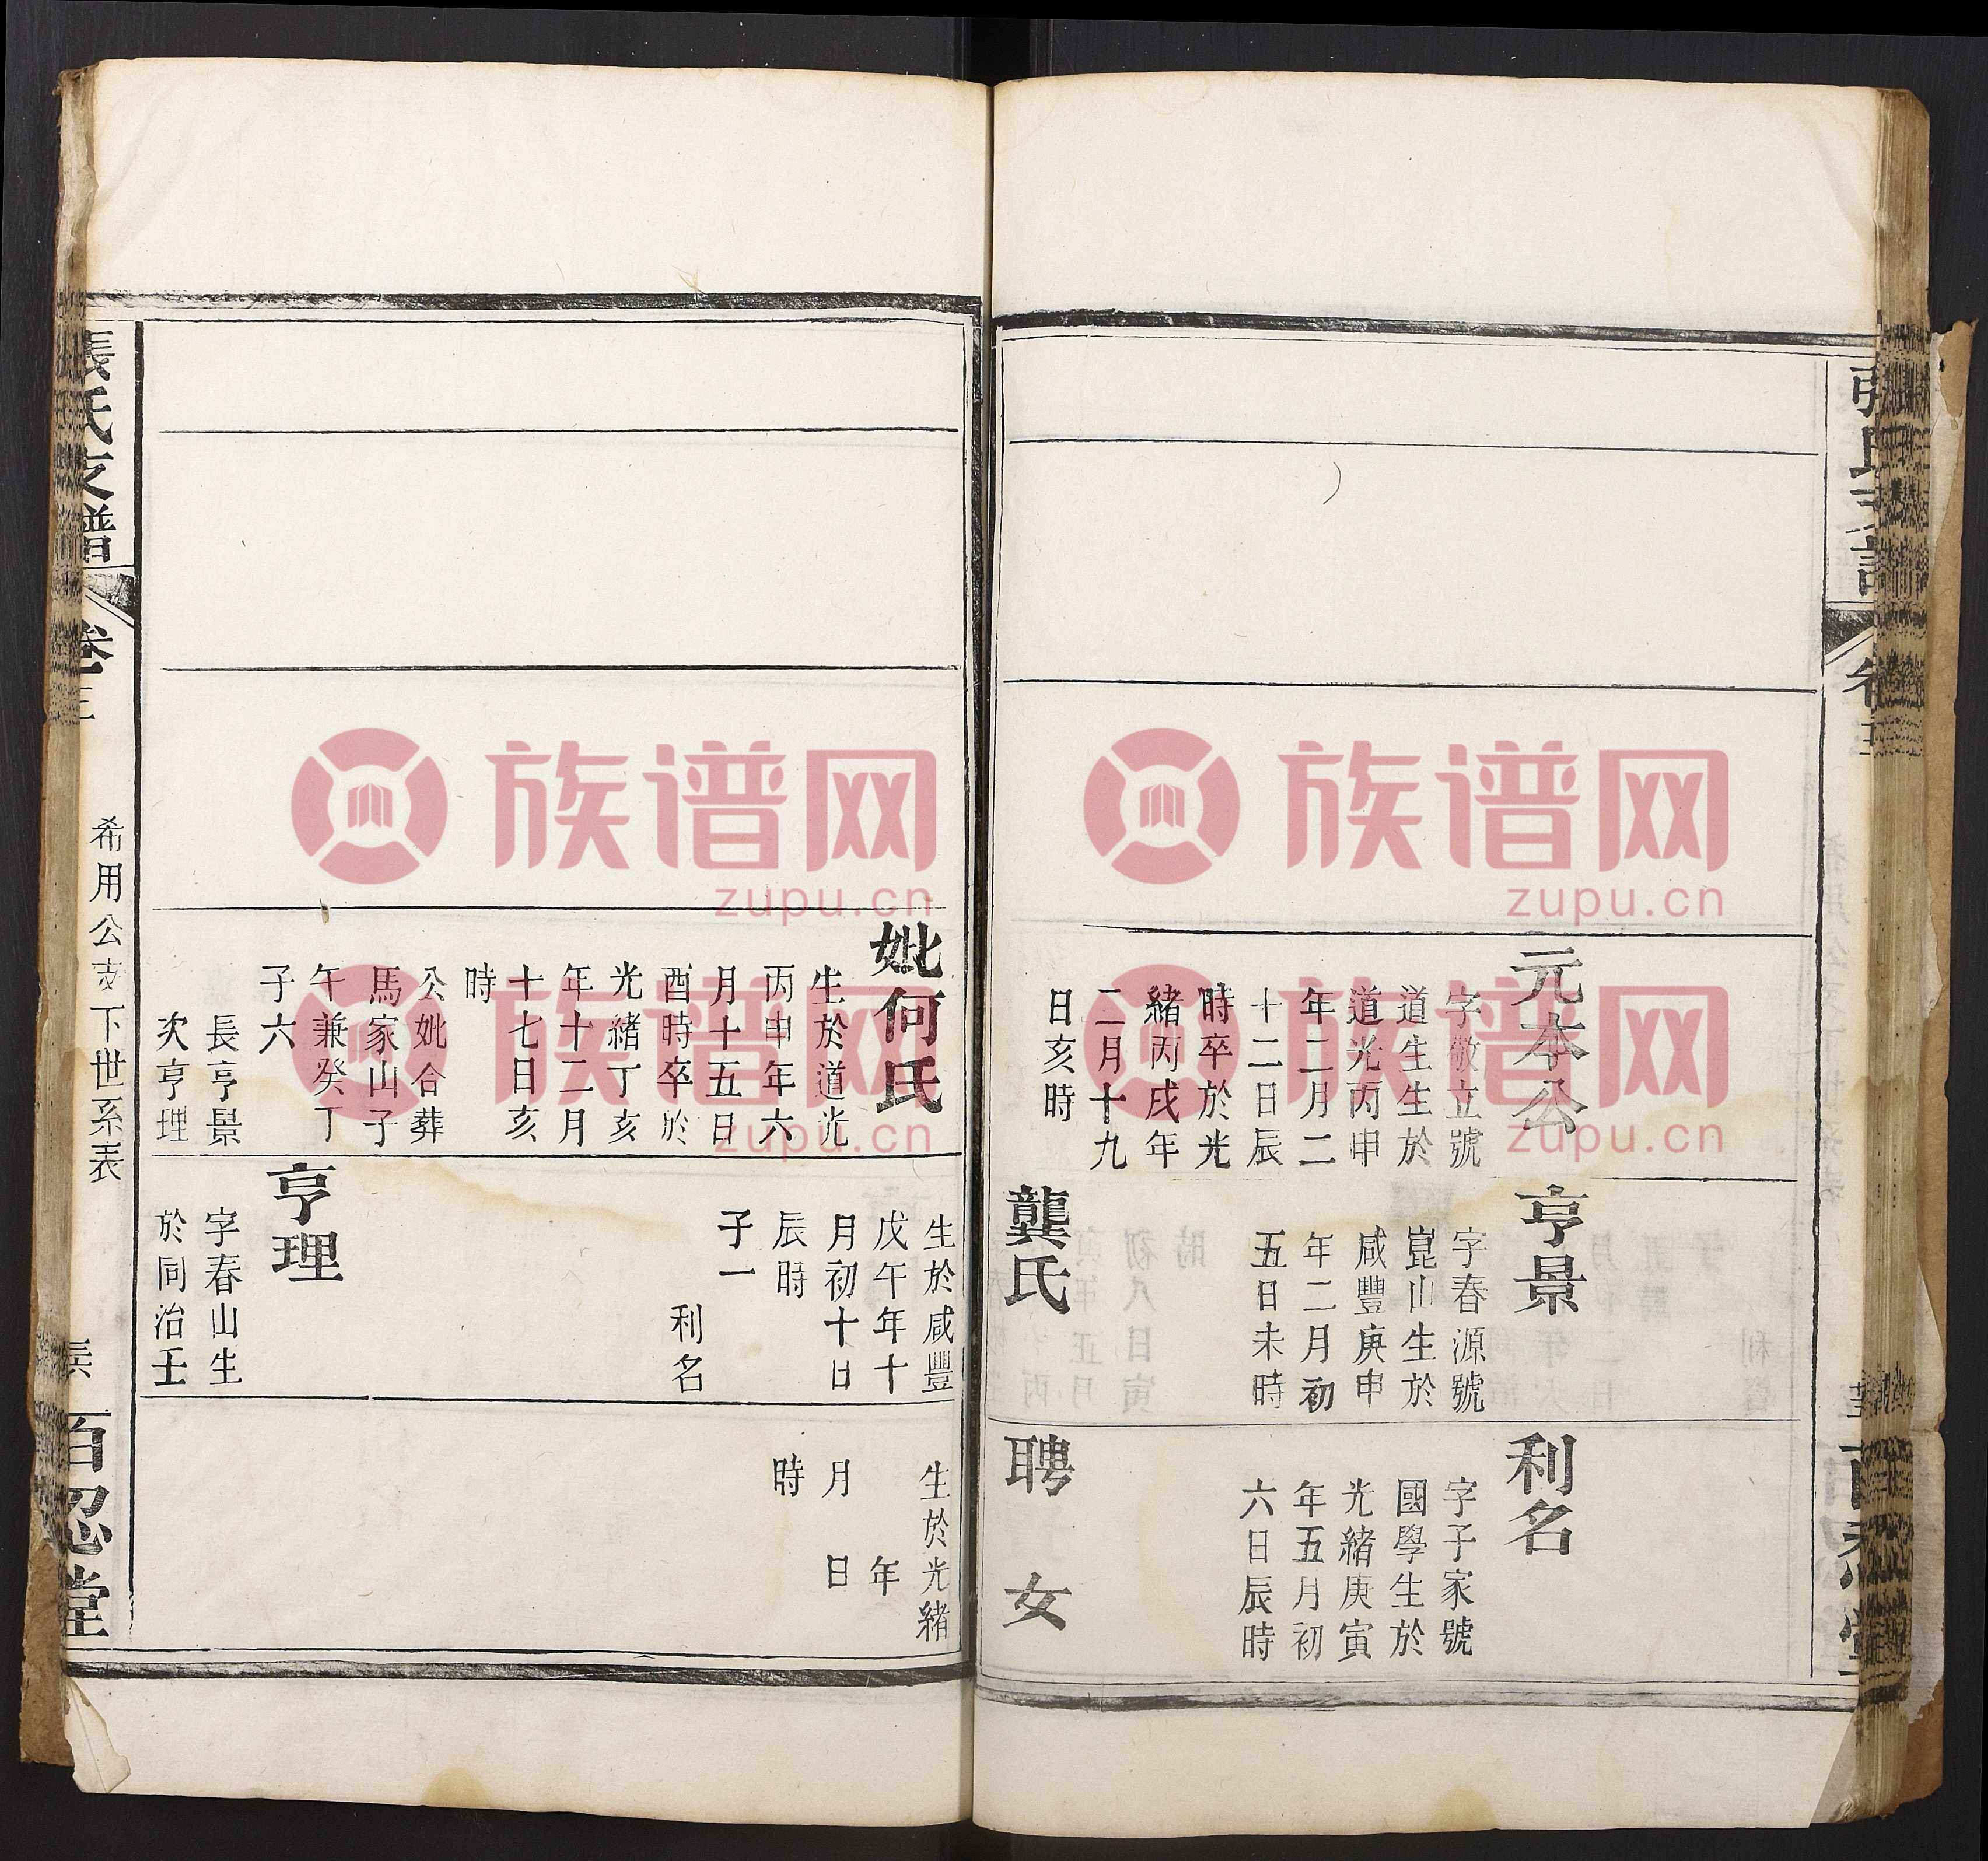 元本公
字敬立號
道生生於
道光丙申
年二月二
十二日辰
時卒於光
緒丙戌年
二月十九
日亥時
亨景
字春源號
崑山生於
咸豐庚申
年二月初
五日未時
龔氏
利名
字子家號
國學生於
光緒庚寅
年五月初
六日辰時
聘女
妣何氏
生於道光
丙申年六
月十五日
酉時卒於
光緒丁亥
年十二月
十七日亥
時
公妣合葬
馬家山子
午兼癸丁
子六
長亨景
次亨理
生於咸豐
戊午年十
月初十日
辰時
子一
利名
亨理
字春山生
於同治壬
生於光緒
年
月 日
時
張氏支譜 卷三
希用公支下世系表
百忍堂
族谱网
zupu.cn
族谱网
zupu.cn
族谱网
zupu.cn
族谱网
zupu.cn